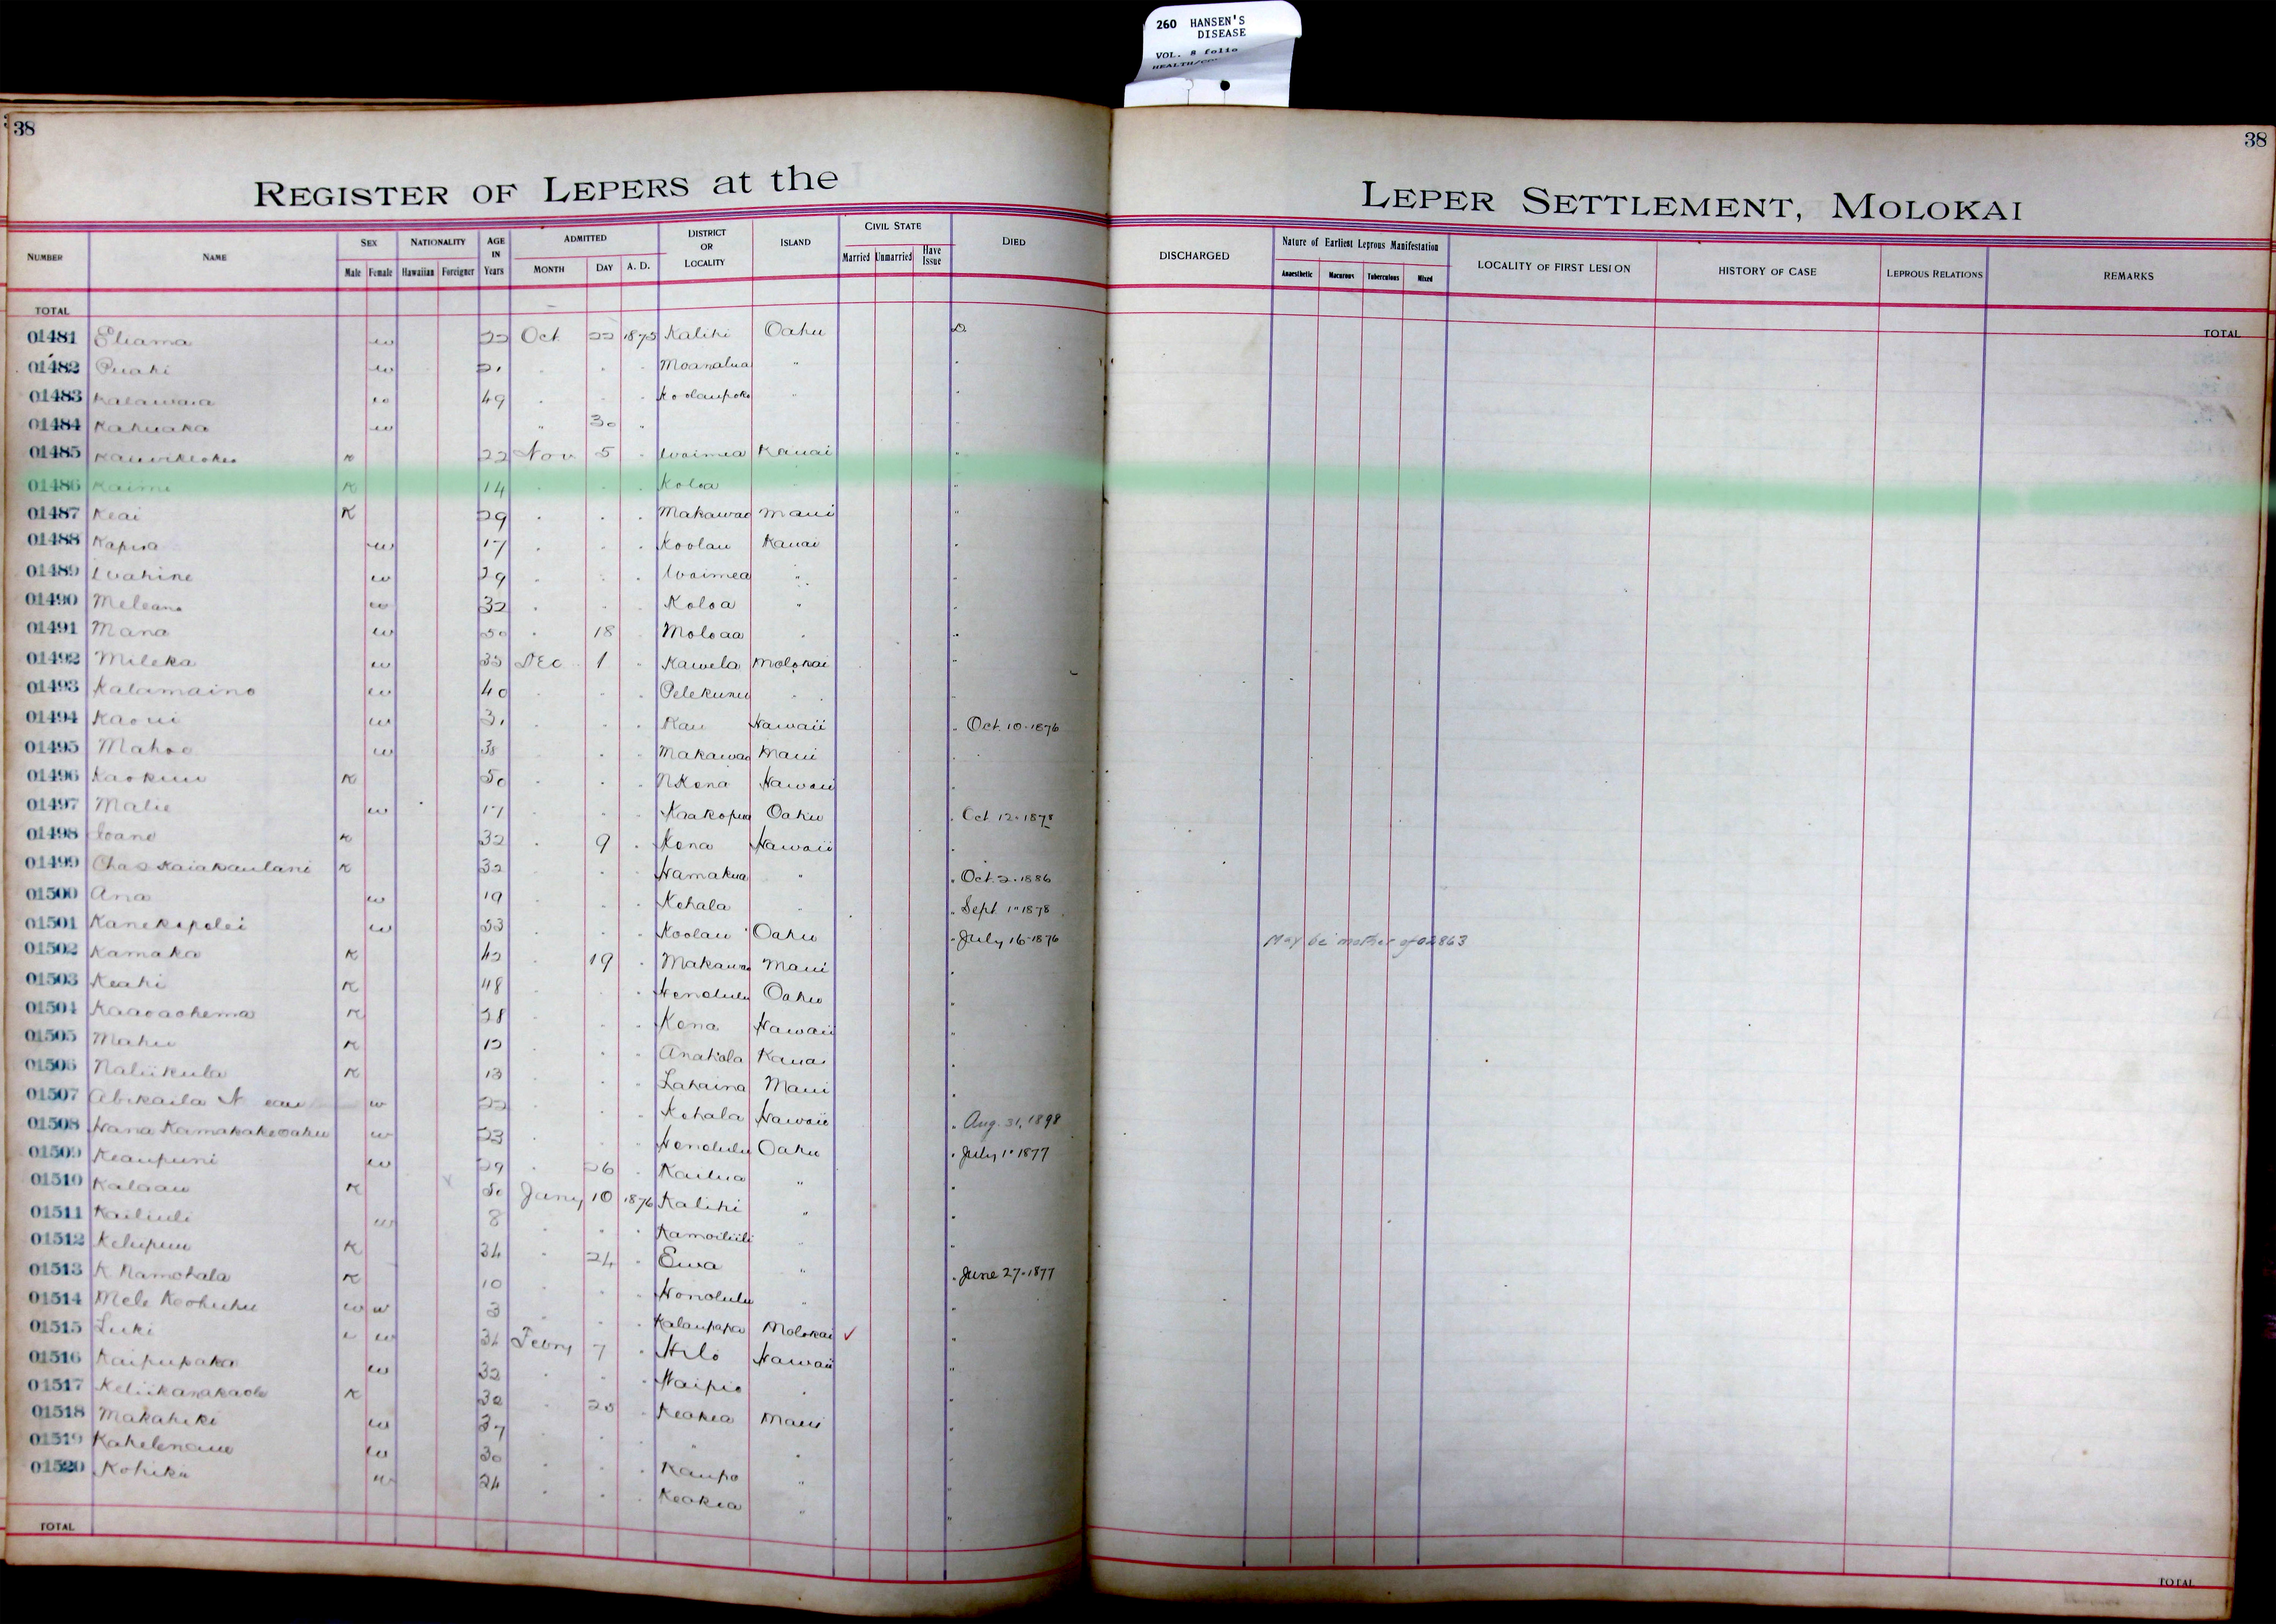 260 HANSEN'S
DISEASE
VOL. 8 folio
38
38
REGISTER OF LEPERS at the LEPER SETTLEMENT, MOLOKAI
NUMBER NAME SEX Male Female NATIONALITY Hawaiian Foreigner AGE IN Years ADMITTED MONTH DAY A. D. DISTRICT OR LOCALITY ISLAND CIVIL STATE Married Unmarried Have Issue DIED DISCHARGED Nature of Earliest Leprous Manifestation Anaesthetic Macurous Tuberculous Mixed LOCALITY OF FIRST LESION HISTORY OF CASE LEPROUS RELATIONS REMARKS
TOTAL TOTAL
01481 Eliama w 22 Oct 22 1875 Kalihi Oahu D
01482 Puahi w " " " Moanalua "
01483 Kalawaia w 49 " " " Koolaupoko "
01484 Kahuaka w " 30 "
01485 K 22 Nov 5 " Waimea Kauai "
01486 Kaimi K 14 " " " Koloa "
01487 Keai K 29 " " " Makawao Maui "
01488 Kapua w 17 " " " Koolau Kauai "
01489 Wahine w 29 " " " Waimea " "
01490 Meleana w 32 " " " Koloa " "
01491 Mana w 50 " 18 " Moloaa " "
01492 Mileka w 35 Dec 1 " Kawela Molokai "
01493 Kalamaino w 40 " " " Pelekunu " "
01494 Kaoui w 31 " " " Kau Hawaii " Oct. 10-1876
01495 Mahoe w 38 " " " Makawao Maui "
01496 Kaokuu K 50 " " " N Kona Hawaii "
01497 Malie w 17 " " " Kaakopua Oahu " Oct 12-1878
01498 Ioane K 32 " 9 " Kona Hawaii "
01499 Chas Kaiakaulani K 32 " " " Hamakua " " Oct. 2-1886
01500 Ana w 19 " " " Kohala " " Sept 1-1878
01501 Kanekapolei w 53 " " " Koolau Oahu " July 16-1876 May be mother of 02863
01502 Kamaka K 42 " 19 " Makawao Maui "
01503 Keahi K 48 " " " Honolulu Oahu "
01504 Kaaoaohema K 28 " " " Kona Hawaii "
01505 Mahu K 12 " " " Anahola Kauai "
01506 Naliikula K 13 " " " Lahaina Maui "
01507 Abikaila N w 22 " " " Kohala Hawaii " Aug. 31, 1898
01508 Hana Kamakakeoahu w 23 " " " Honolulu Oahu " July 1-1877
01509 Keaupuni w 29 " 26 " Kailua " "
01510 Kalaau K 50 Jany 10 1876 Kalihi " "
01511 Kailiuli w 8 " " " Kamoiliili " "
01512 Kelupuu K 34 " 24 " Ewa " " June 27-1877
01513 K Namohala K 10 " " " Honolulu " "
01514 Mele Keohuhu w w 3 " " " Kalaupapa Molokai ✓ "
01515 Luki w 34 Febry 7 " Hilo Hawaii "
01516 Kaipupaka w 32 " " " Waipio " "
01517 K 30 " 20 " Keokea Maui "
01518 Makahiki w 37 " " " " " "
01519 Kahelenaue w 30 " " " Kaupo " "
01520 Kohika w 24 " " " Keokea " "
TOTAL TOTAL